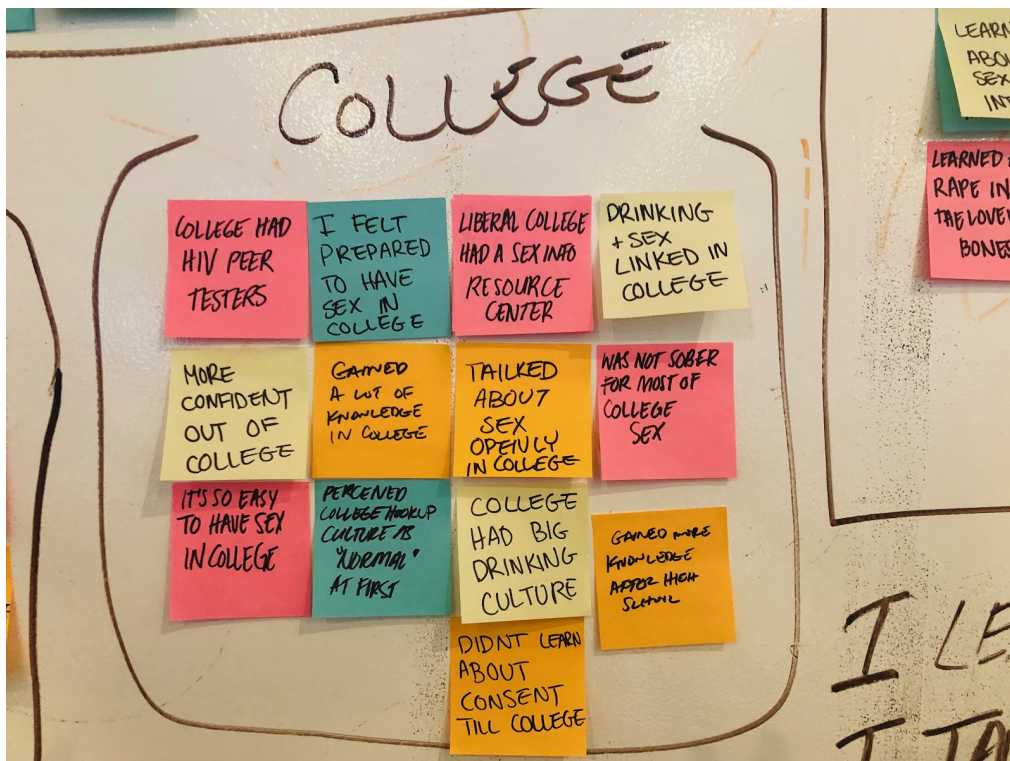 COLLEGE
COLLEGE HAD
HIV PEER
TESTERS
I FELT
PREPARED
TO HAVE
SEX IN
COLLEGE
LIBERAL COLLEGE
HAD A SEX INFO
RESOURCE
CENTER
DRINKING
+ SEX
LINKED IN
COLLEGE
MORE
CONFIDENT
OUT OF
COLLEGE
GAINED
A LOT OF
KNOWLEDGE
IN COLLEGE
TAILKED
ABOUT
SEX
OPENLY
IN COLLEGE
WAS NOT SOBER
FOR MOST OF
COLLEGE
SEX
IT'S SO EASY
TO HAVE SEX
IN COLLEGE
PERCEIVED
COLLEGE HOOKUP
CULTURE AS
"NORMAL"
AT FIRST
COLLEGE
HAD BIG
DRINKING
CULTURE
GAINED MORE
KNOWLEDGE
AFTER HIGH
SCHOOL
DIDNT LEARN
ABOUT
CONSENT
TILL COLLEGE
LEARN
ABOU
SEX
INT
LEARNED
RAPE IN
THE LOVE
BONES
I LE
I TA